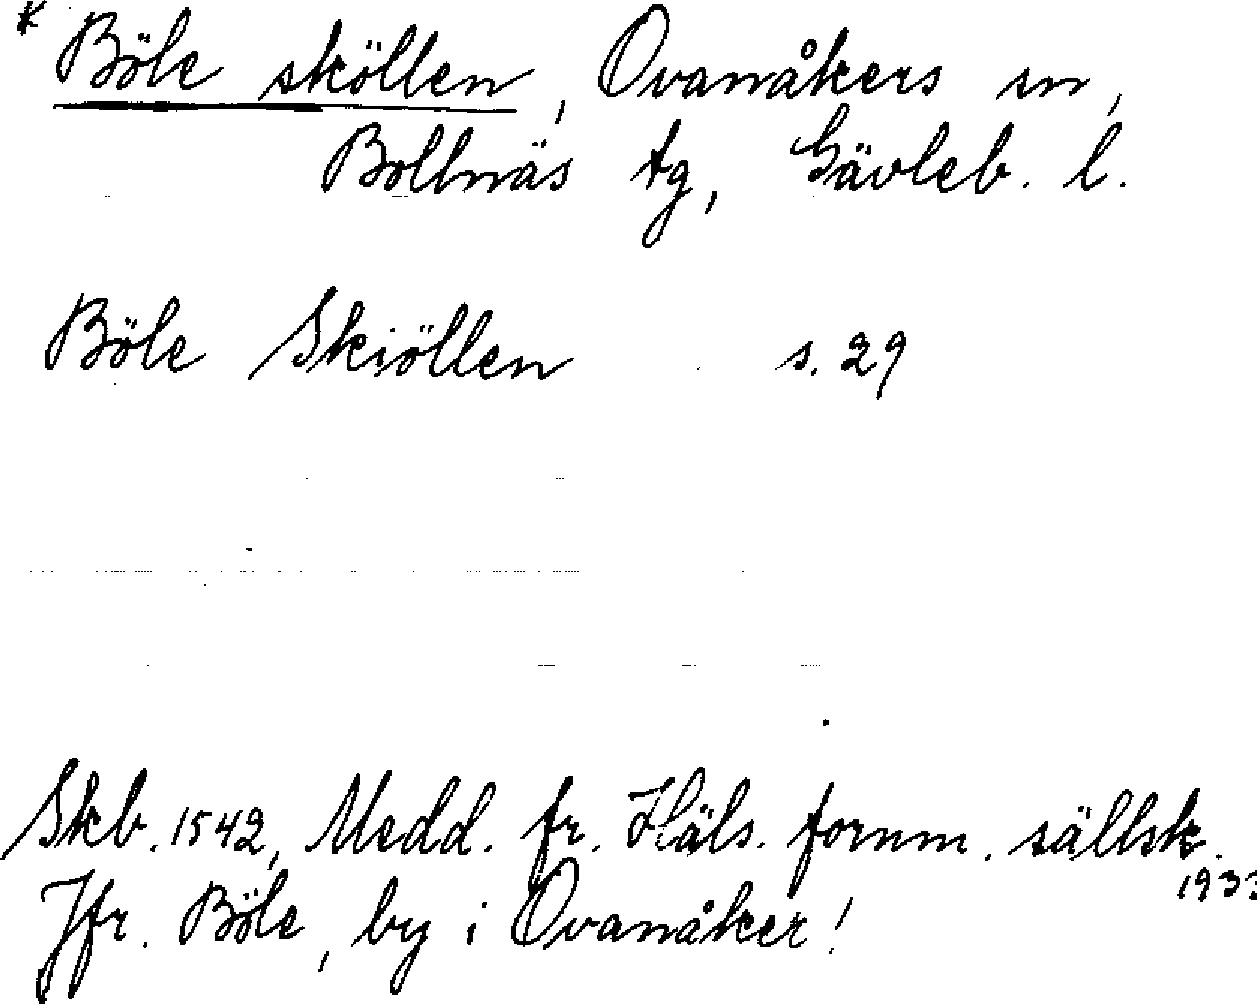 * Böle sköllen, Ovanåkers sn,
Bollnäs tg, Gävleb. l.
Böle Skiöllen s. 29
Skb. 1542, Medd. fr. Häls. fornm. sällsk.
1933
Jfr. Böle, by i Ovanåker!